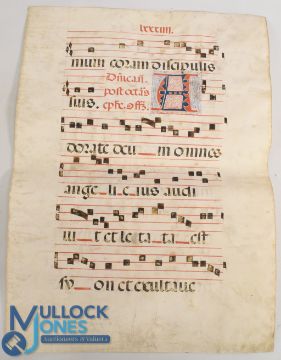 lxxxiiii.
mum coram discipulis
Dñica.i.
post octãs
suis. epĥe. offm̃. A
dorate deu m omnes
ange li e ius audi
ui t et le ta ta est
sy on et exultaue
MULLOCK
JONES
Auctioneers & Valuers